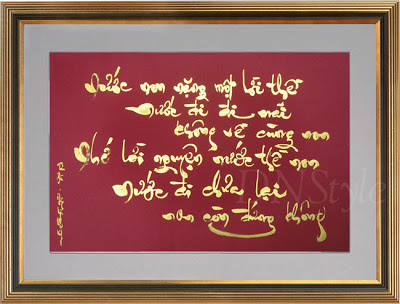 Nước non nặng một lời thề
Nước đi đi mãi
không về cùng non
Nhớ lời nguyện nước thề non
Nước đi chưa lại
non còn đứng không